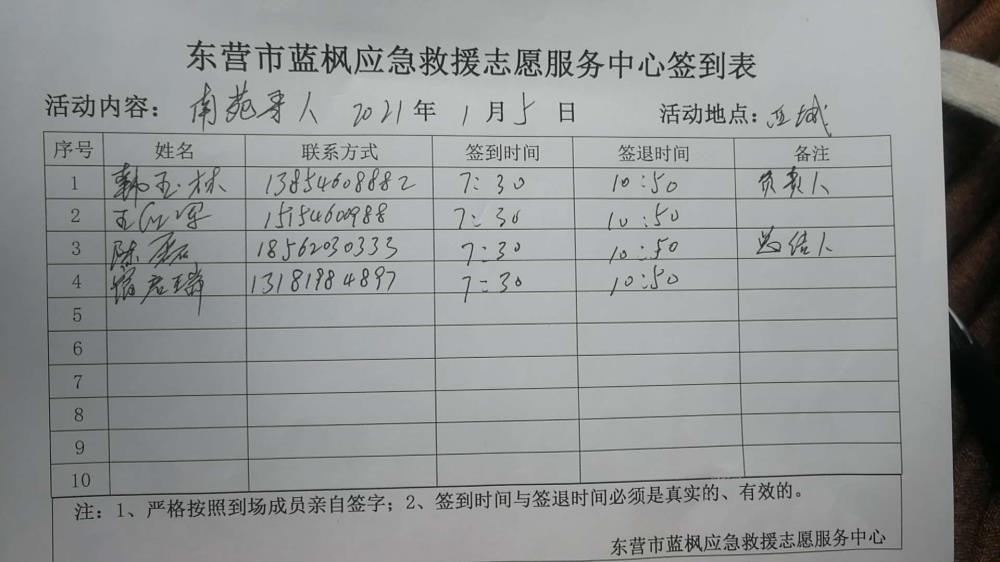 东营市蓝枫应急救援志愿服务中心签到表
活动内容：南苑寻人 2021年 1月5日 活动地点：西城
序号 姓名 联系方式 签到时间 签退时间 备注
1 韩玉林 13854608882 7:30 10:50 负责人
2 王 军 15154600988 7:30 10:50
3 陈磊 18562030333 7:30 10:50 总结人
4 君瑞 13181984897 7:30 10:50
5
6
7
8
9
10
注：1、严格按照到场成员亲自签字；2、签到时间与签退时间必须是真实的、有效的。
东营市蓝枫应急救援志愿服务中心